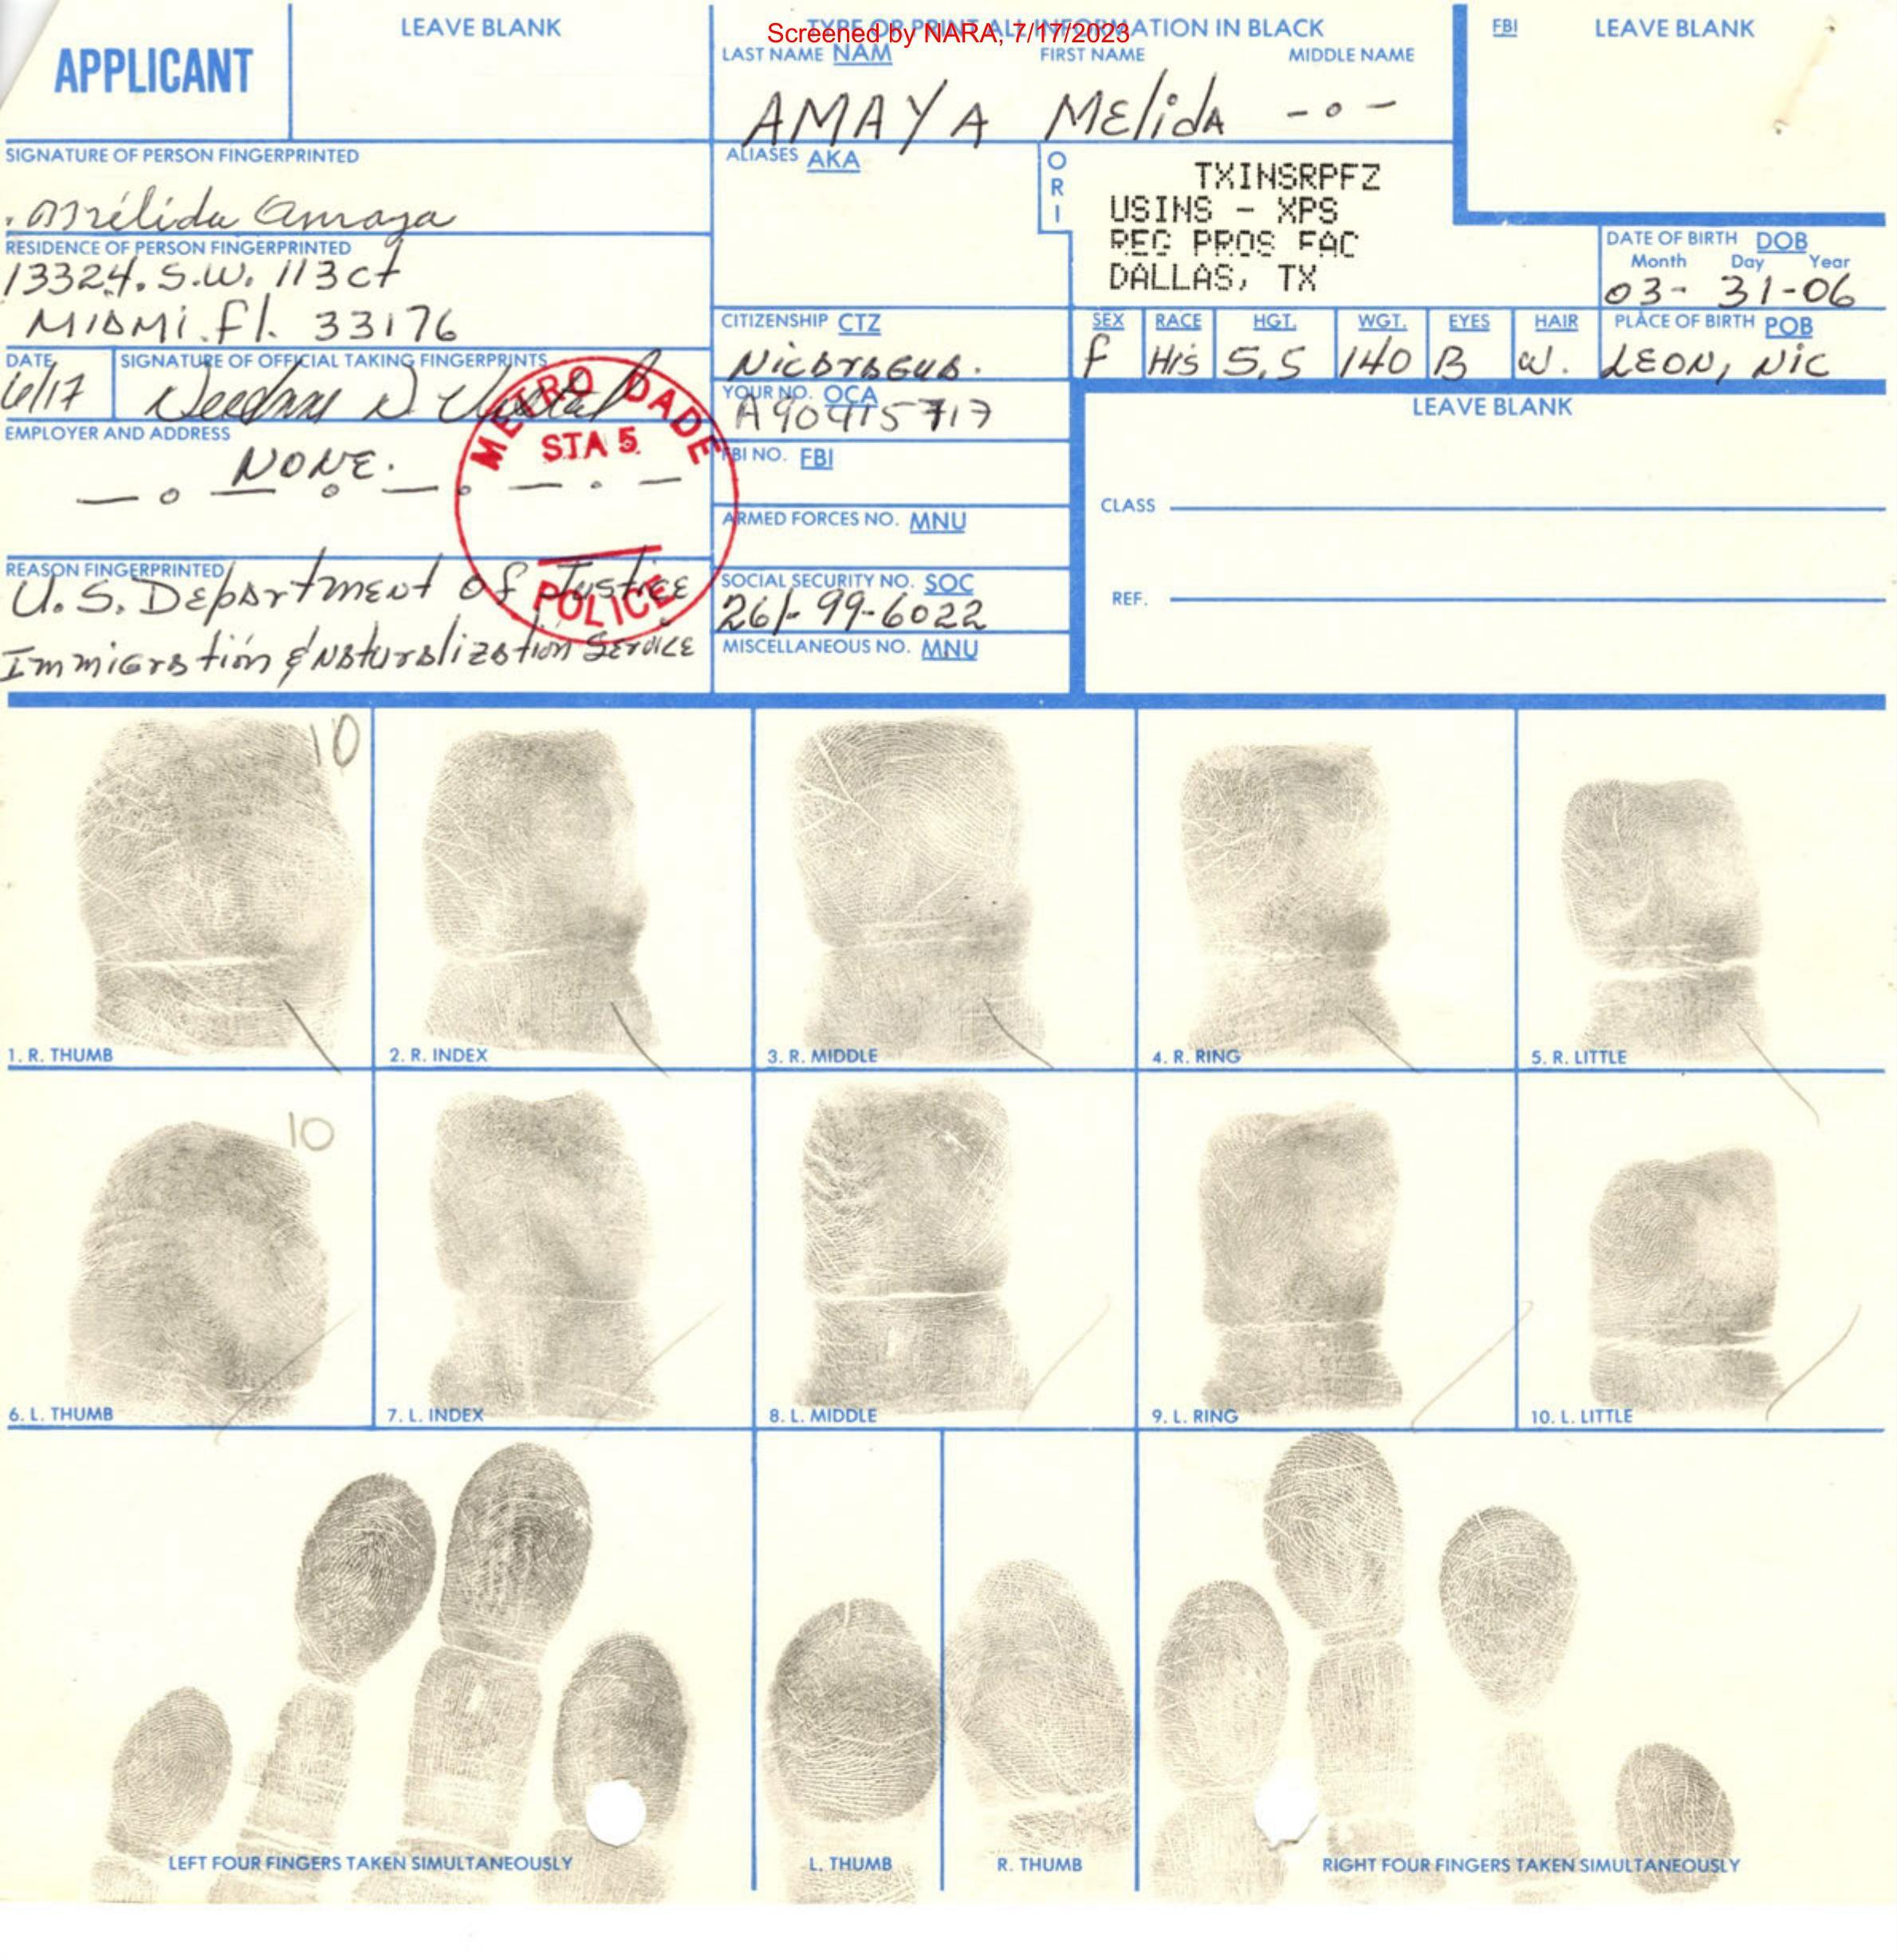 Screened by NARA, 7/17/2023
APPLICANT
LEAVE BLANK
TYPE OR PRINT ALL INFORMATION IN BLACK
LAST NAME NAM FIRST NAME MIDDLE NAME
AMAYA Melida - o -
FBI LEAVE BLANK
SIGNATURE OF PERSON FINGERPRINTED
Mélida Amaya
ALIASES AKA
ORI
TXINSRPFZ
USINS - XPS
REG PROS FAC
DALLAS, TX
RESIDENCE OF PERSON FINGERPRINTED
13324. S.W. 113 ct
MIAMI. Fl. 33176
DATE OF BIRTH DOB
Month Day Year
03- 31-06
CITIZENSHIP CTZ
Nicaragua.
SEX RACE HGT. WGT. EYES HAIR
F His 5,5 140 B W.
PLACE OF BIRTH POB
LEON, NIC
DATE
6/17
SIGNATURE OF OFFICIAL TAKING FINGERPRINTS
METRO DADE
STA 5
POLICE
YOUR NO. OCA
A90415717
LEAVE BLANK
EMPLOYER AND ADDRESS
NONE.
FBI NO. FBI
CLASS
ARMED FORCES NO. MNU
REASON FINGERPRINTED
U.S. Department of Justice
Immigration & Naturalization Service
SOCIAL SECURITY NO. SOC
261-99-6022
REF.
MISCELLANEOUS NO. MNU
10
1. R. THUMB
2. R. INDEX
3. R. MIDDLE
4. R. RING
5. R. LITTLE
10
6. L. THUMB
7. L. INDEX
8. L. MIDDLE
9. L. RING
10. L. LITTLE
LEFT FOUR FINGERS TAKEN SIMULTANEOUSLY
L. THUMB
R. THUMB
RIGHT FOUR FINGERS TAKEN SIMULTANEOUSLY